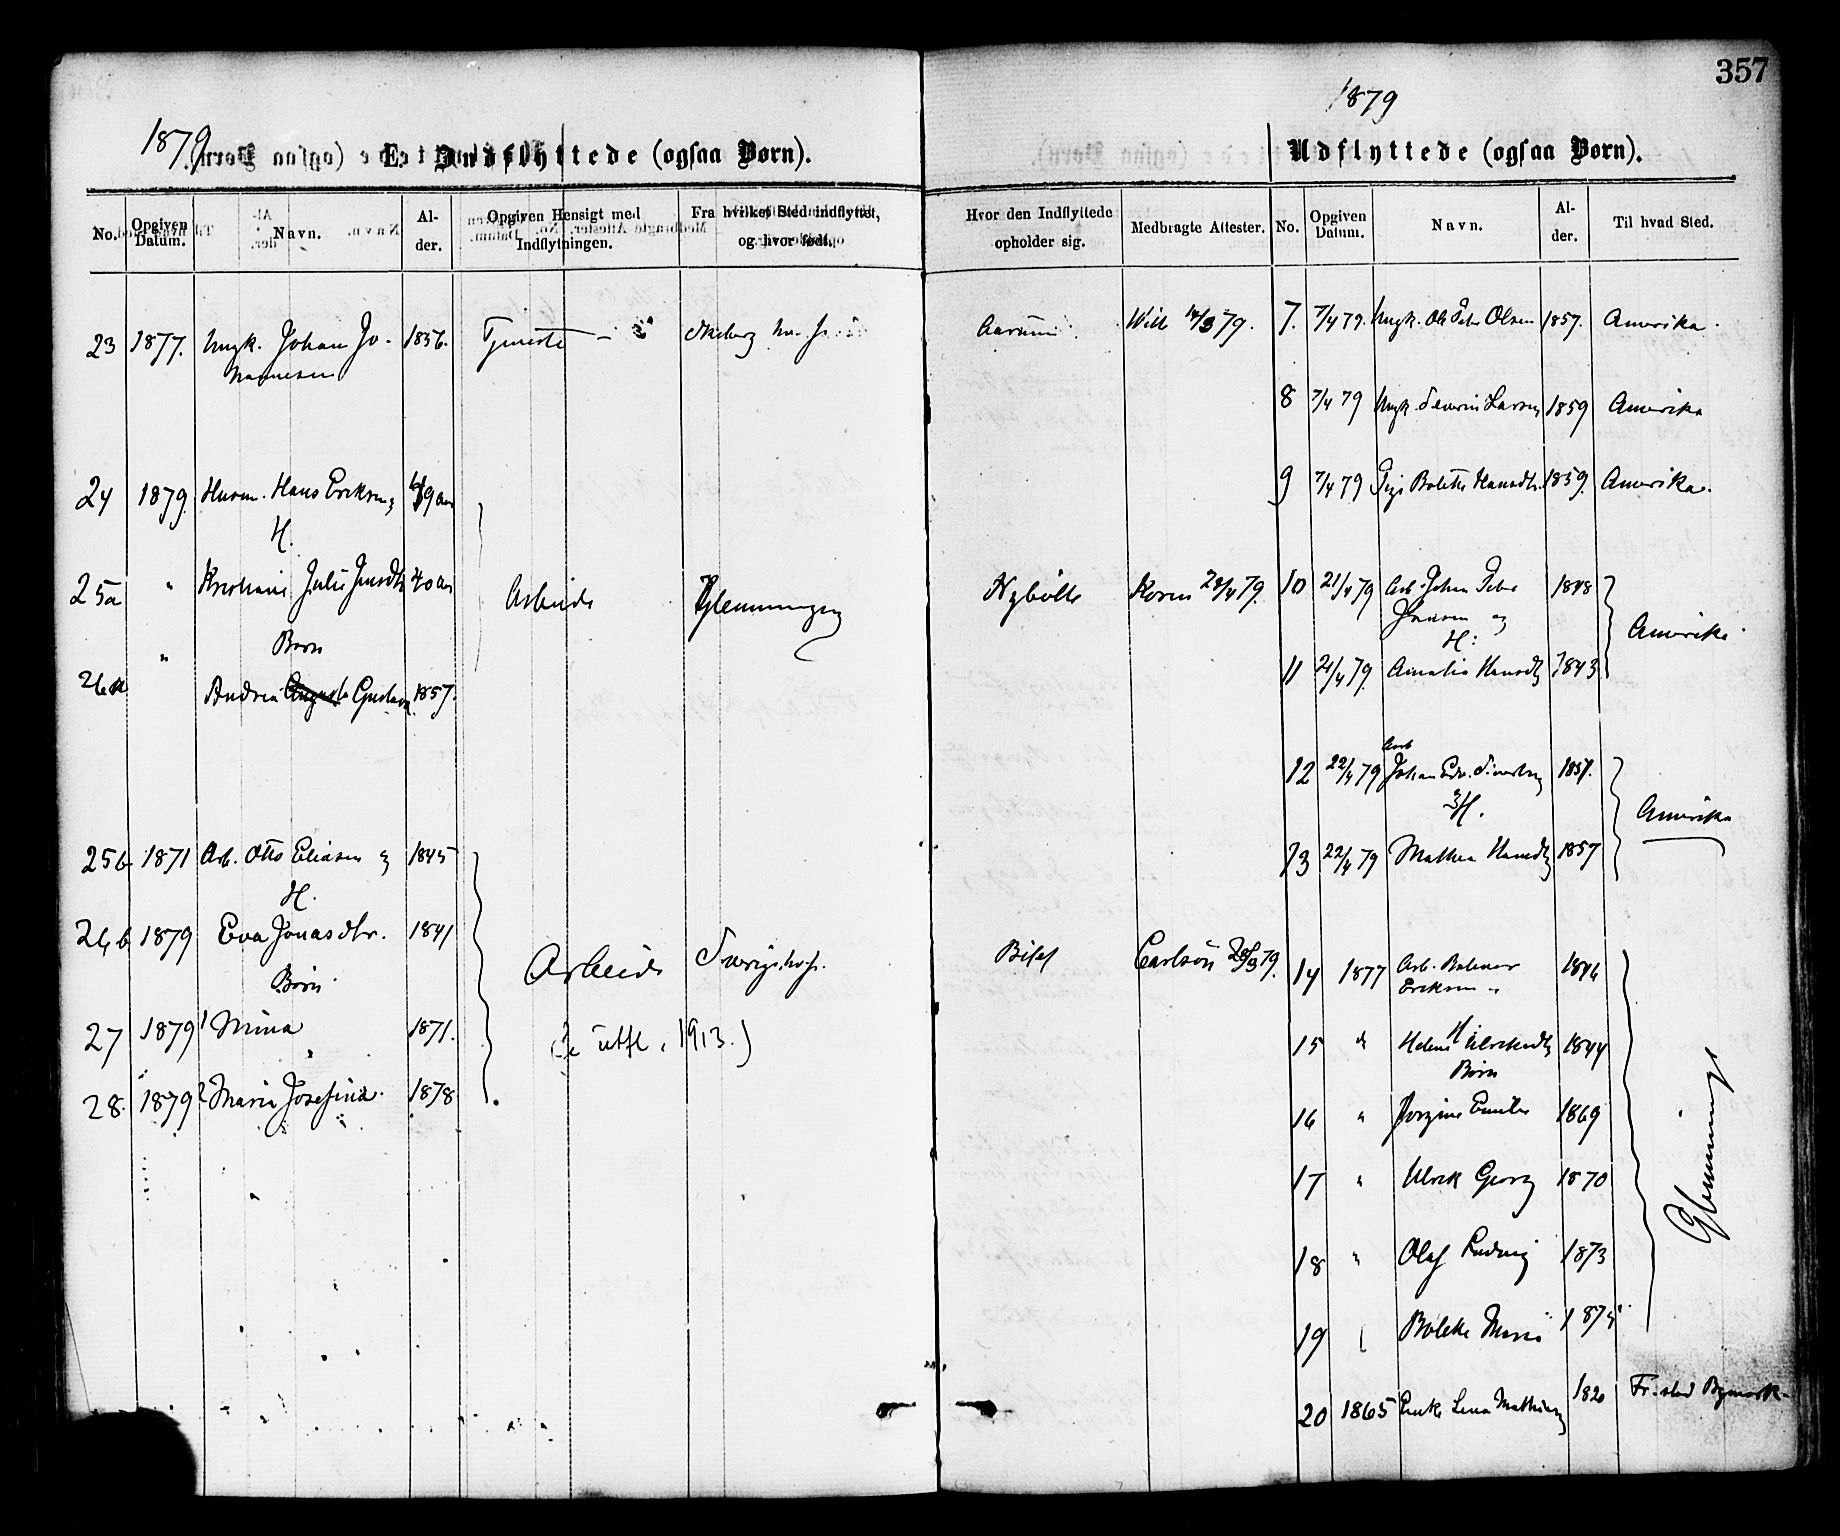 357
1879
E. Indflyttede (ogsaa Børn).
No.
Opgiven Datum.
Navn.
Al-
der.
Opgiven Hensigt med
Indflytningen.
Fra hvilket Sted indflyttet,
og hvor født.
23 1877. Ungk. Johan Jo- 1856. Tjeneste
hannesen
24 1879. Husm. Hans Eriksen 49 aar
H.
25a " Kristiane Julie Jensdtr 40 aar Arbeide Glemminge
Børn
26a " Andrea Gustava 1857.
25b 1871 Arb. Otto Eliasen og 1845
H.
26b 1879 Eva Jonasdtr. 1841 Arbeide Sverige
Børn
27 1879 1 Mina 1871. (Se utfl. 1913.)
28. 1879 2 Maria Josefina. 1878
1879
Udflyttede (ogsaa Børn).
Hvor den Indflyttede
opholder sig.
Medbragte Attester.
No.
Opgiven
Datum.
Navn.
Al-
der.
Til hvad Sted.
Aarum Will 14/3 79. 7. 7/4 79. Ungk. Ole Peter Olsen 1857. Amerika.
8 7/4 79 Ungk. Severin Larsen 1859 Amerika
9 7/4 79 Pige Bolette Hansdtr. 1859. Amerika.
Nybølle Koren 28/4 79. 10 21/4 79 Arb. Johan Peter 1848
Hansen og
H:
Amerika
11 21/4 79. Amalia Hansdtr 1843
Arb
12 22/4 79 Johan Edv. 1857.
og H.
Amerika
13 22/4 79 Mathea Hansdtr 1857
Carlson 28/3 79.
14 1877 Arb. 1846
Eriksen
H
15 " Helene Ulriksdtr 1844
Børn
16 " Jorgine Emilie 1869
17 " Ulrik Georg 1870
18 " Olaf Ludvig 1873
19 Bolette Marie 1875
Glemminge
20 1865 Enke Lena 1820 Fr.stad Bymark.